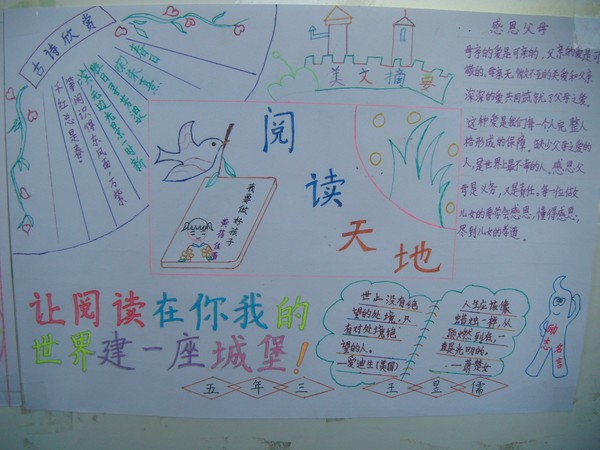 古诗欣赏
春日
朱熹
胜日寻芳泗水滨
无边光景一时新
等闲识得东风面
万紫
千红总是春。
美文摘要
阅读天地
我要做好孩子
感恩父母
母亲的爱是可亲的，父亲的爱是可
深深的爱共同筑就了父母之爱。
这种爱是我们每一个人完整人
格形成的保障。缺少父母之爱的
人，是世界上最不幸的人，感恩父
母是义务，又是责任。每一位做
儿女的要学会感恩，懂得感恩，
尽到儿女的孝道。
让阅读在你我的
世界建一座城堡！
世上没有绝
望的处境，只
有对处境绝
望的人。
—爱迪生(美国)
人生应该像
蜡烛一样，从
顶燃到底，一
直是光明的。
—萧楚女
励志名言
五年三
王昱儒